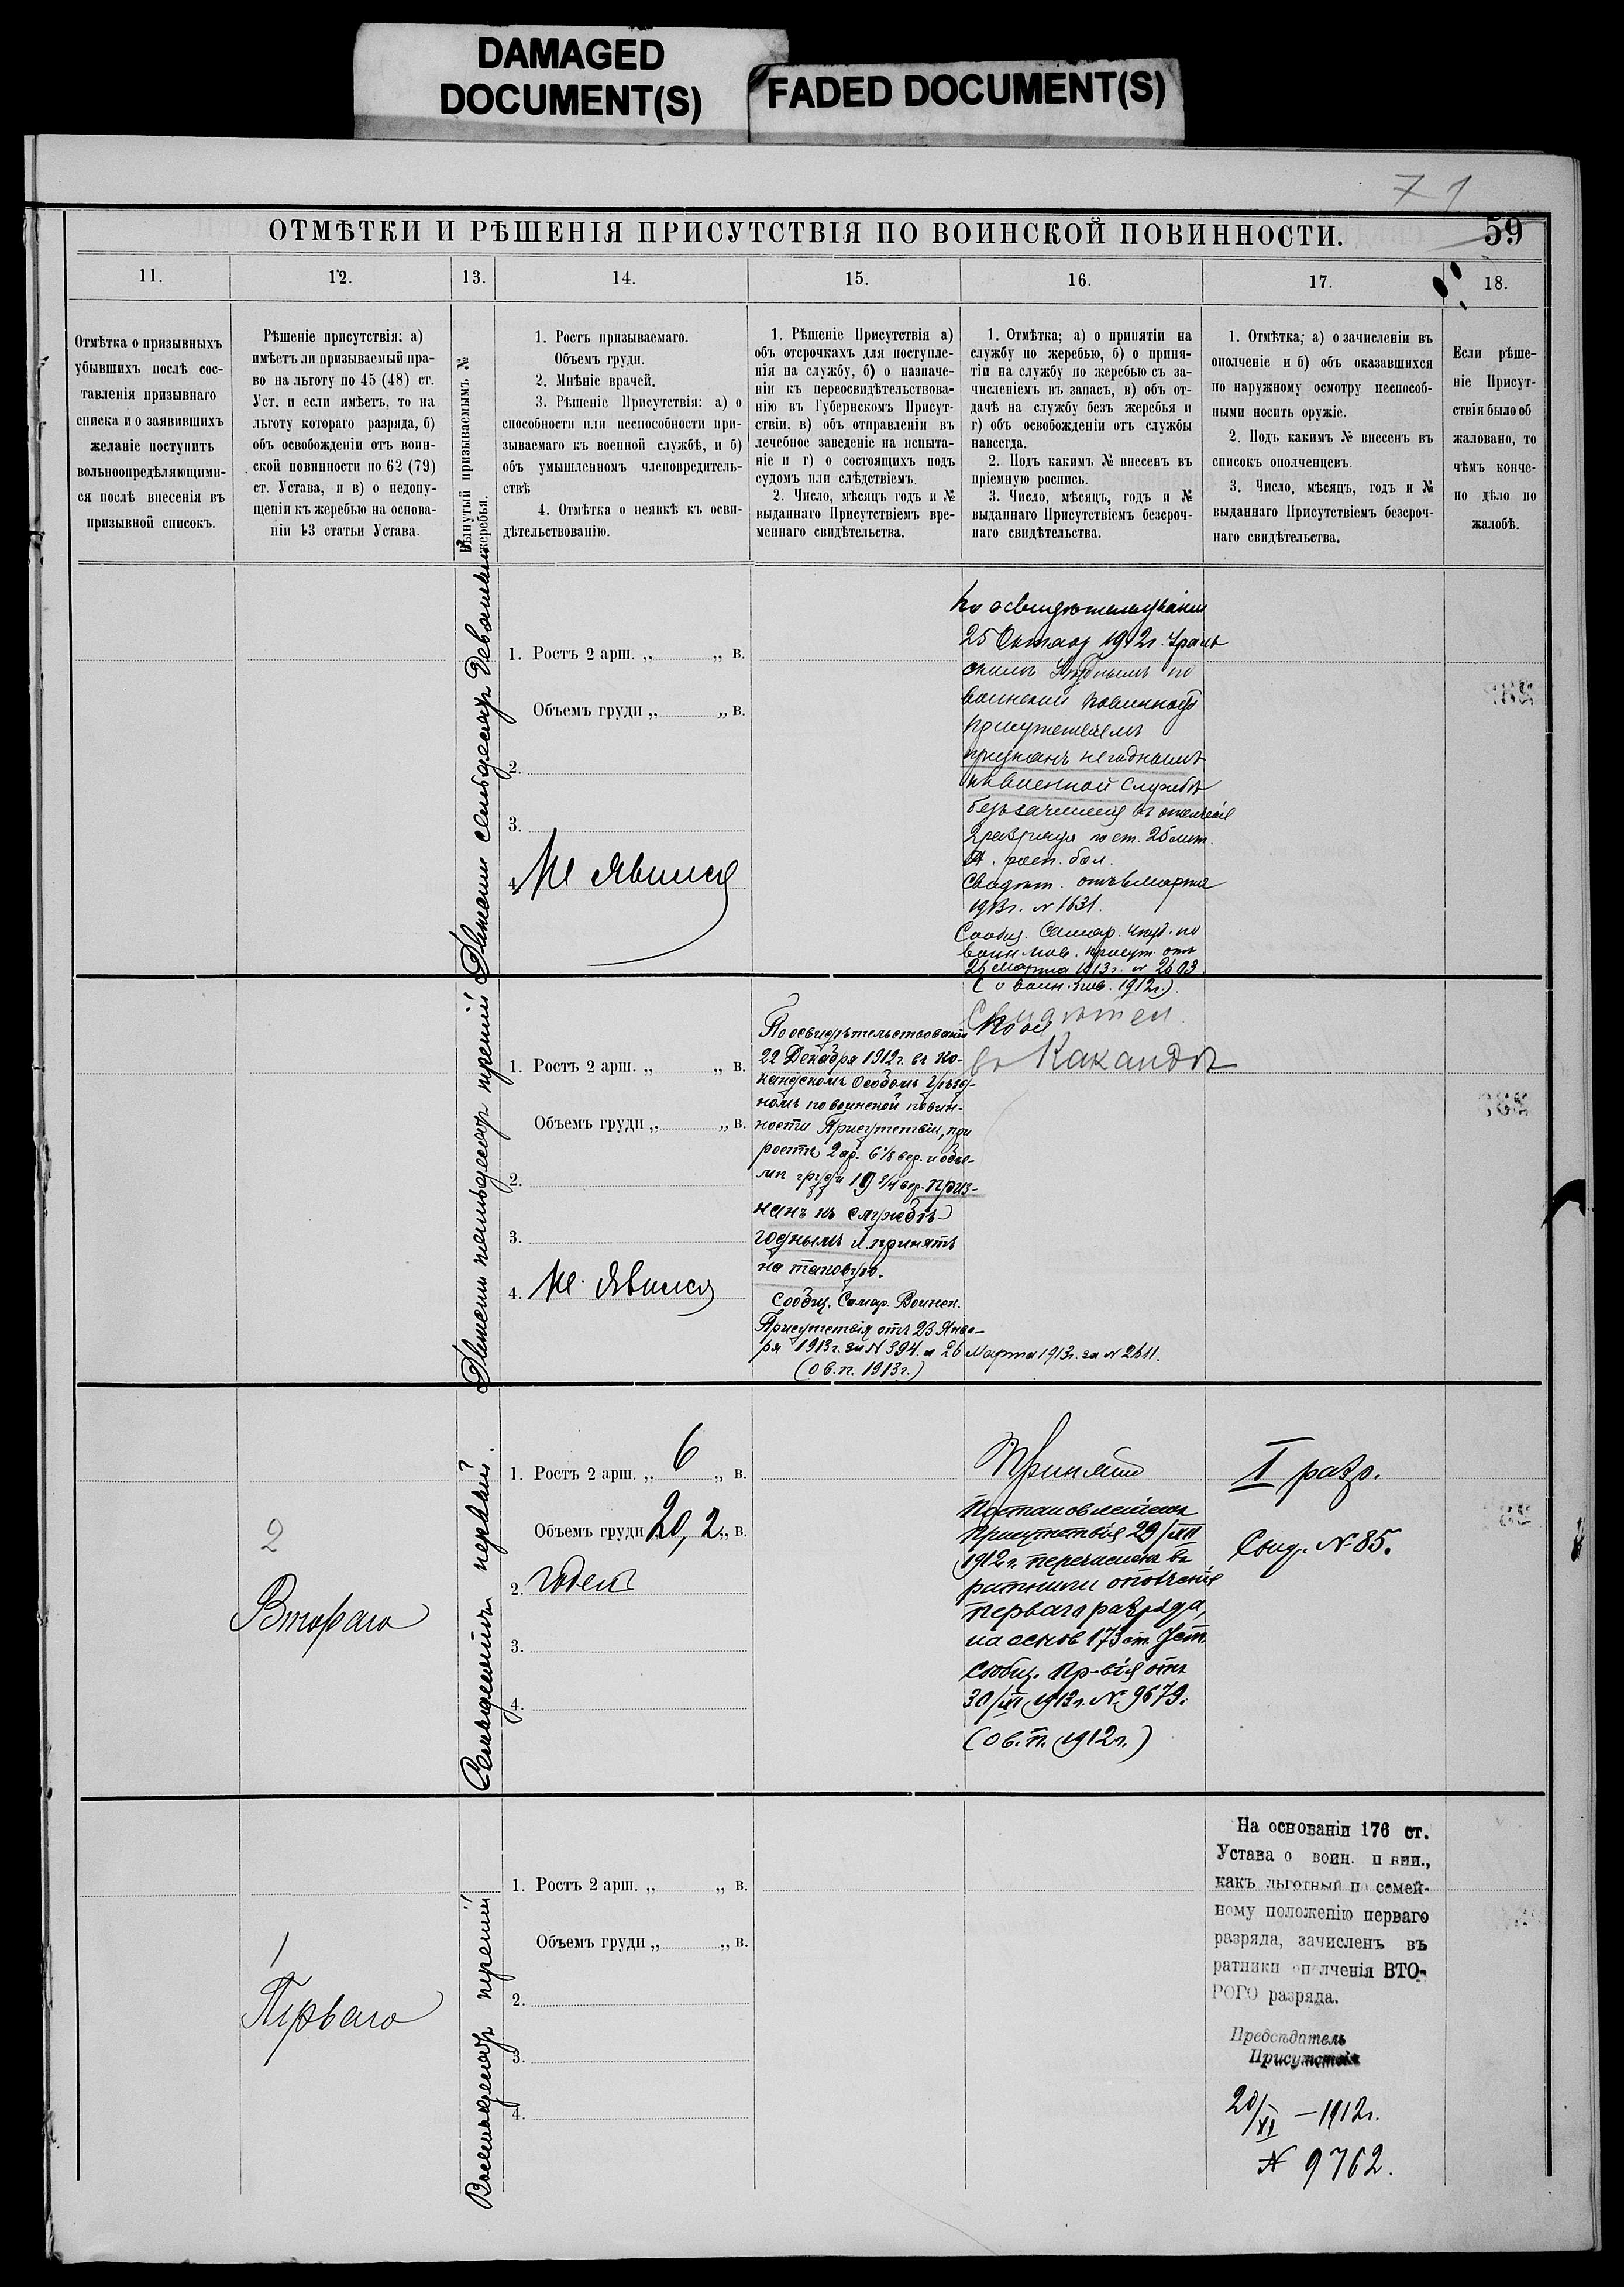 DAMAGED
DOCUMENT(S)
FADED DOCUMENT(S)
71
ОТМѢТКИ И РѢШЕНІЯ ПРИСУТСТВІЯ ПО ВОИНСКОЙ ПОВИННОСТИ.
59
11.
12.
13.
14.
15.
16.
17.
18.
Отмѣтка о призывныхъ
убывшихъ послѣ сос-
тавленія призывнаго
списка и о заявившихъ
желаніе поступить
вольноопредѣляющими-
ся послѣ внесенія въ
призывной списокъ.
Рѣшеніе присутствія: а)
имѣетъ ли призываемый пра-
во на льготу по 45 (48) ст.
Уст. и если имѣетъ, то на
льготу котораго разряда, б)
объ освобожденіи отъ воин-
ской повинности по 62 (79)
ст. Устава, и в) о недопу-
щеніи къ жеребью на основа-
ніи 13 статьи Устава.
Вынутый призываемымъ №
жеребья.
1. Ростъ призываемаго.
Объемъ груди.
2. Мнѣніе врачей.
3. Рѣшеніе Присутствія: а) о
способности или неспособности при-
зываемаго къ военной службѣ, и б)
объ умышленномъ членовредитель-
ствѣ
4. Отмѣтка о неявкѣ къ осви-
дѣтельствованію.
1. Рѣшеніе Присутствія а)
объ отсрочкахъ для поступле-
нія на службу, б) о назначе-
ніи къ переосвидѣтельствова-
нію въ Губернскомъ Присут-
ствіи, в) объ отправленіи въ
лечебное заведеніе на испыта-
ніе и г) о состоящихъ подъ
судомъ или слѣдствіемъ.
2. Число, мѣсяцъ годъ и №
выданнаго Присутствіемъ вре-
меннаго свидѣтельства.
1. Отмѣтка; а) о принятіи на
службу по жеребью, б) о приня-
тіи на службу по жеребью съ за-
численіемъ въ запасъ, в) объ от-
дачѣ на службу безъ жеребья и
г) объ освобожденіи отъ службы
навсегда.
2. Подъ какимъ № внесенъ въ
пріемную роспись.
3. Число, мѣсяцъ, годъ и №
выданнаго Присутствіемъ безсроч-
наго свидѣтельства.
1. Отмѣтка; а) о зачисленіи въ
ополченіе и б) объ оказавшихся
по наружному осмотру неспособ-
ными носить оружіе.
2. Подъ какимъ № внесенъ въ
списокъ ополченцевъ.
3. Число, мѣсяцъ, годъ и №
выданнаго Присутствіемъ безсроч-
наго свидѣтельства.
Если рѣше-
ніе Присут-
ствія было об
жаловано, то
чѣмъ конче-
но дѣло по
жалобѣ.
1. Ростъ 2 арш. „ „ в.
Объемъ груди „ „ в.
2.
3.
4. Не явился
По освидѣтельствованіи
25 Октября 1912г.
по
воинской повинности
Присутствіемъ
признанъ негоднымъ
къ военной службѣ
безъ зачисленія въ ополченіе
2 разряда по ст. 25 лит.
А. росп. бол.
Свидѣт. отъ 6 Марта
1913г. № 1631.
Сообщ. Самар. по
воин. пов. присут. отъ
26 Марта 1913г. № 2603
(о воин. пов. 1912г.).
Пятьсотъ третій
1. Ростъ 2 арш. „ „ в.
Объемъ груди „ „ в.
2.
3.
4. Не явился
По освидѣтельствованіи
22 Декабря 1912г. въ Ко-
кандскомъ Особомъ Уѣзд-
номъ по воинской повин-
ности Присутствіи, при
ростѣ 2 ар. 6 1/8 вер. и объе-
мѣ груди 19 3/4 вер. приз-
нанъ къ службѣ
годнымъ и принятъ
на таковую.
Сообщ. Самар. Воинск.
Присутствія отъ 23 Янва-
ря 1913г. за № 394. и 26 Марта 1913г. за № 2611.
(о в. п. 1913г.)
Свидѣтел.
въ Какандѣ
2
Втораго
первый.
1. Ростъ 2 арш. „ 6 „ в.
Объемъ груди 20,2 „ в.
2. годенъ
3.
4.
Принятъ
Постановленіемъ
Присутствія 29/XII
1912г. перечисленъ въ
ратники ополченія
перваго разряда,
на основ 173 ст. Уст.
Сообщ. Пр-вія отъ
30/XII 1913г. № 9679.
(о в. п. 1912г.)
I разр.
Свид. № 85.
1
Перваго
третій
1. Ростъ 2 арш. „ „ в.
Объемъ груди „ „ в.
2.
3.
4.
На основаніи 176 ст.
Устава о воин. п вин.,
какъ льготный по семей-
ному положенію перваго
разряда, зачисленъ въ
ратники ополченія ВТО-
РОГО разряда.
Предсѣдатель
Присутствія
20/XI — 1912г.
№ 9762.